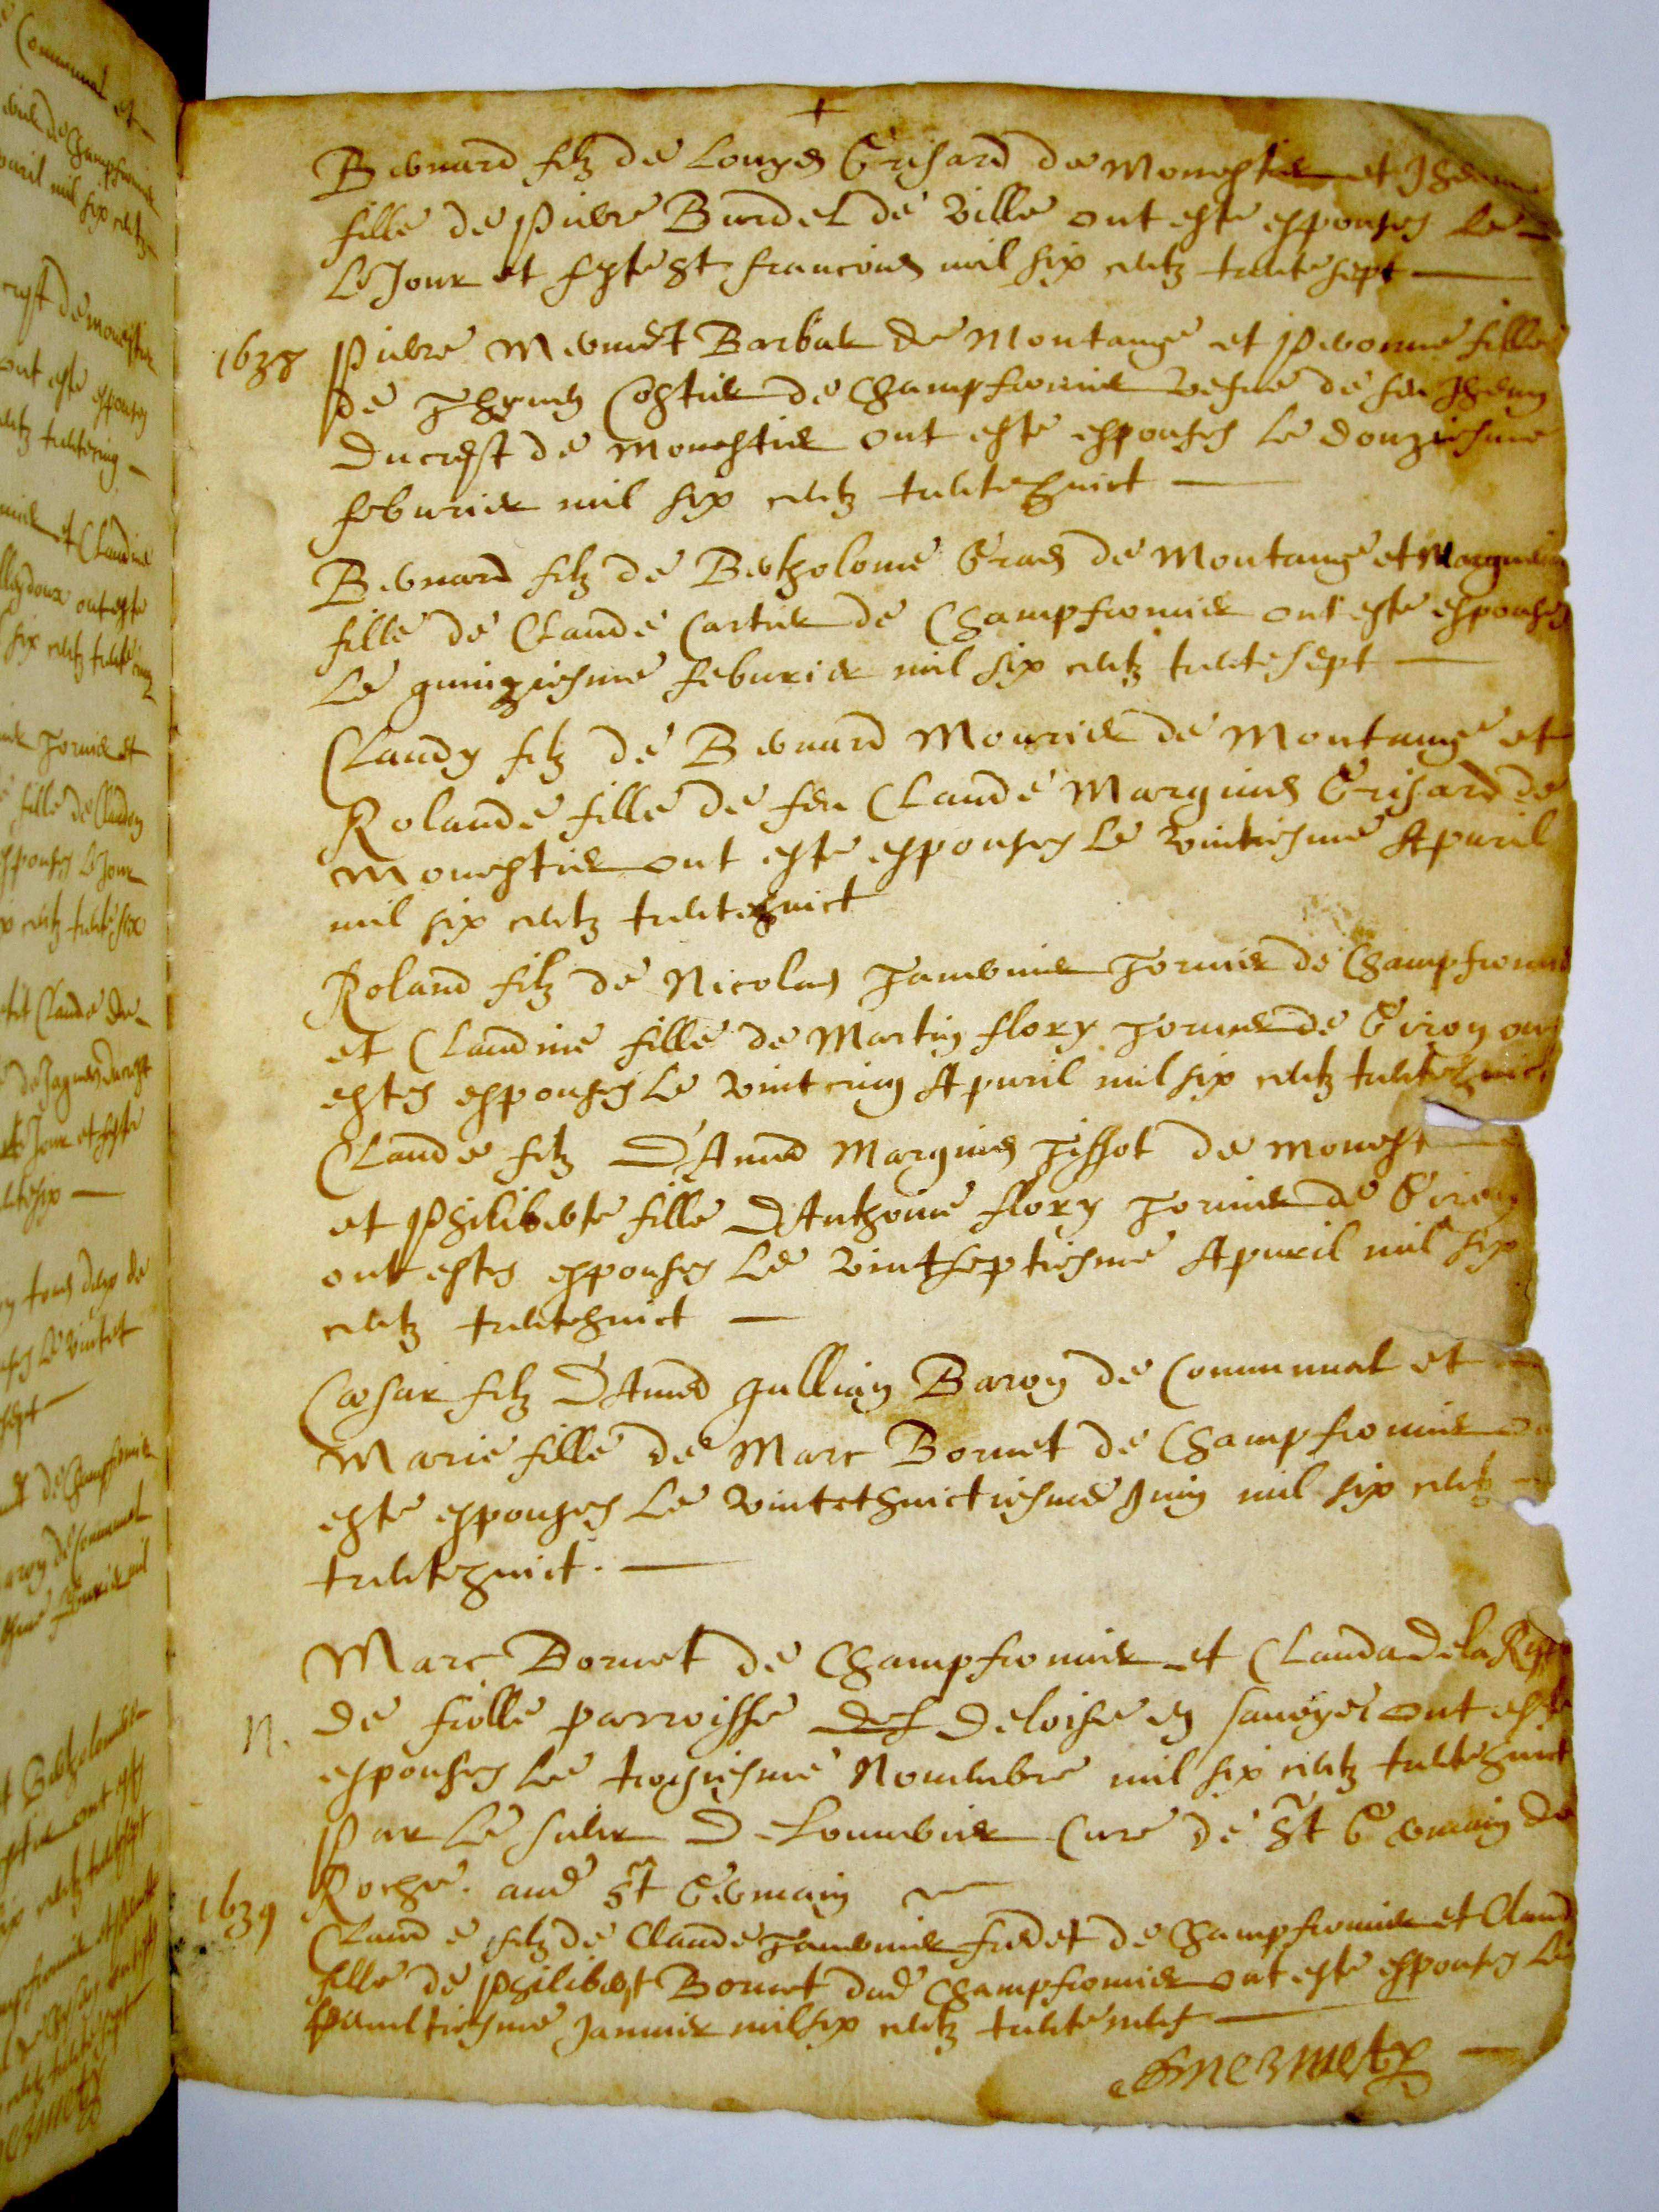 Bernard filz de Louys Grisard de Monestier et
fille de Pierre Burdel de Ville ont este espouses le
le Jour et feste St francois mil six centz trente sept
1638 Pierre Mermet Barbat de Montange et Pernonne fille
de Thyven Costier de Champfromier vefue de feu Jheny
Ducrest de Monestier ont este espouses le douziesme
feburier mil six centz trente huict
Bernard filz de Bertholome Gras de Montange et Marguerite
fille de Claude Cartier de Champfromier ont este espouses
Le quinziesme feburier mil six centz trente sept
Claudy filz de Bernard Mourier de Montange et
Rolande fille de feu Claude Marquis Grisard de
Monestier ont este espouses le vintiesme Apuril
mil six centz trente huict
Roland filz de Nicolas Tavernier Tornier de Champfromier
et Claudine fille de Martin flory Tornier de Giron ont
estes espouses le vintcinq Apuril mil six centz trente huict
Claude filz D'Amed Marquis Tissot de Monest
et Philiberte fille D'Anthoine flory Tornier de Giron
ont estes espouses le vintseptiesme Apuril mil six
centz trente huict
Cæsar filz D'Amed Jullian Baron de Communal et
Marie fille de Marc Bornet de Champfromier
este espouses le vintethuictiesme Juin mil six centz
trente huict.
Marc Bornet de Champfromier et Clauda Dela
N. de fiolle parroisse des Deloise en Sauoye ont este
espouses le troisiesme Nouembre mil six centz trente huict
Par le sieur Curé de St Germain de
Roche. aud St Germain
1639 Claude filz de Claude Tavernier de Champfromier et Claud
fille de Philibert Bornet dud Champfromier ont este espouses le
Januier mil six centz trente neuf